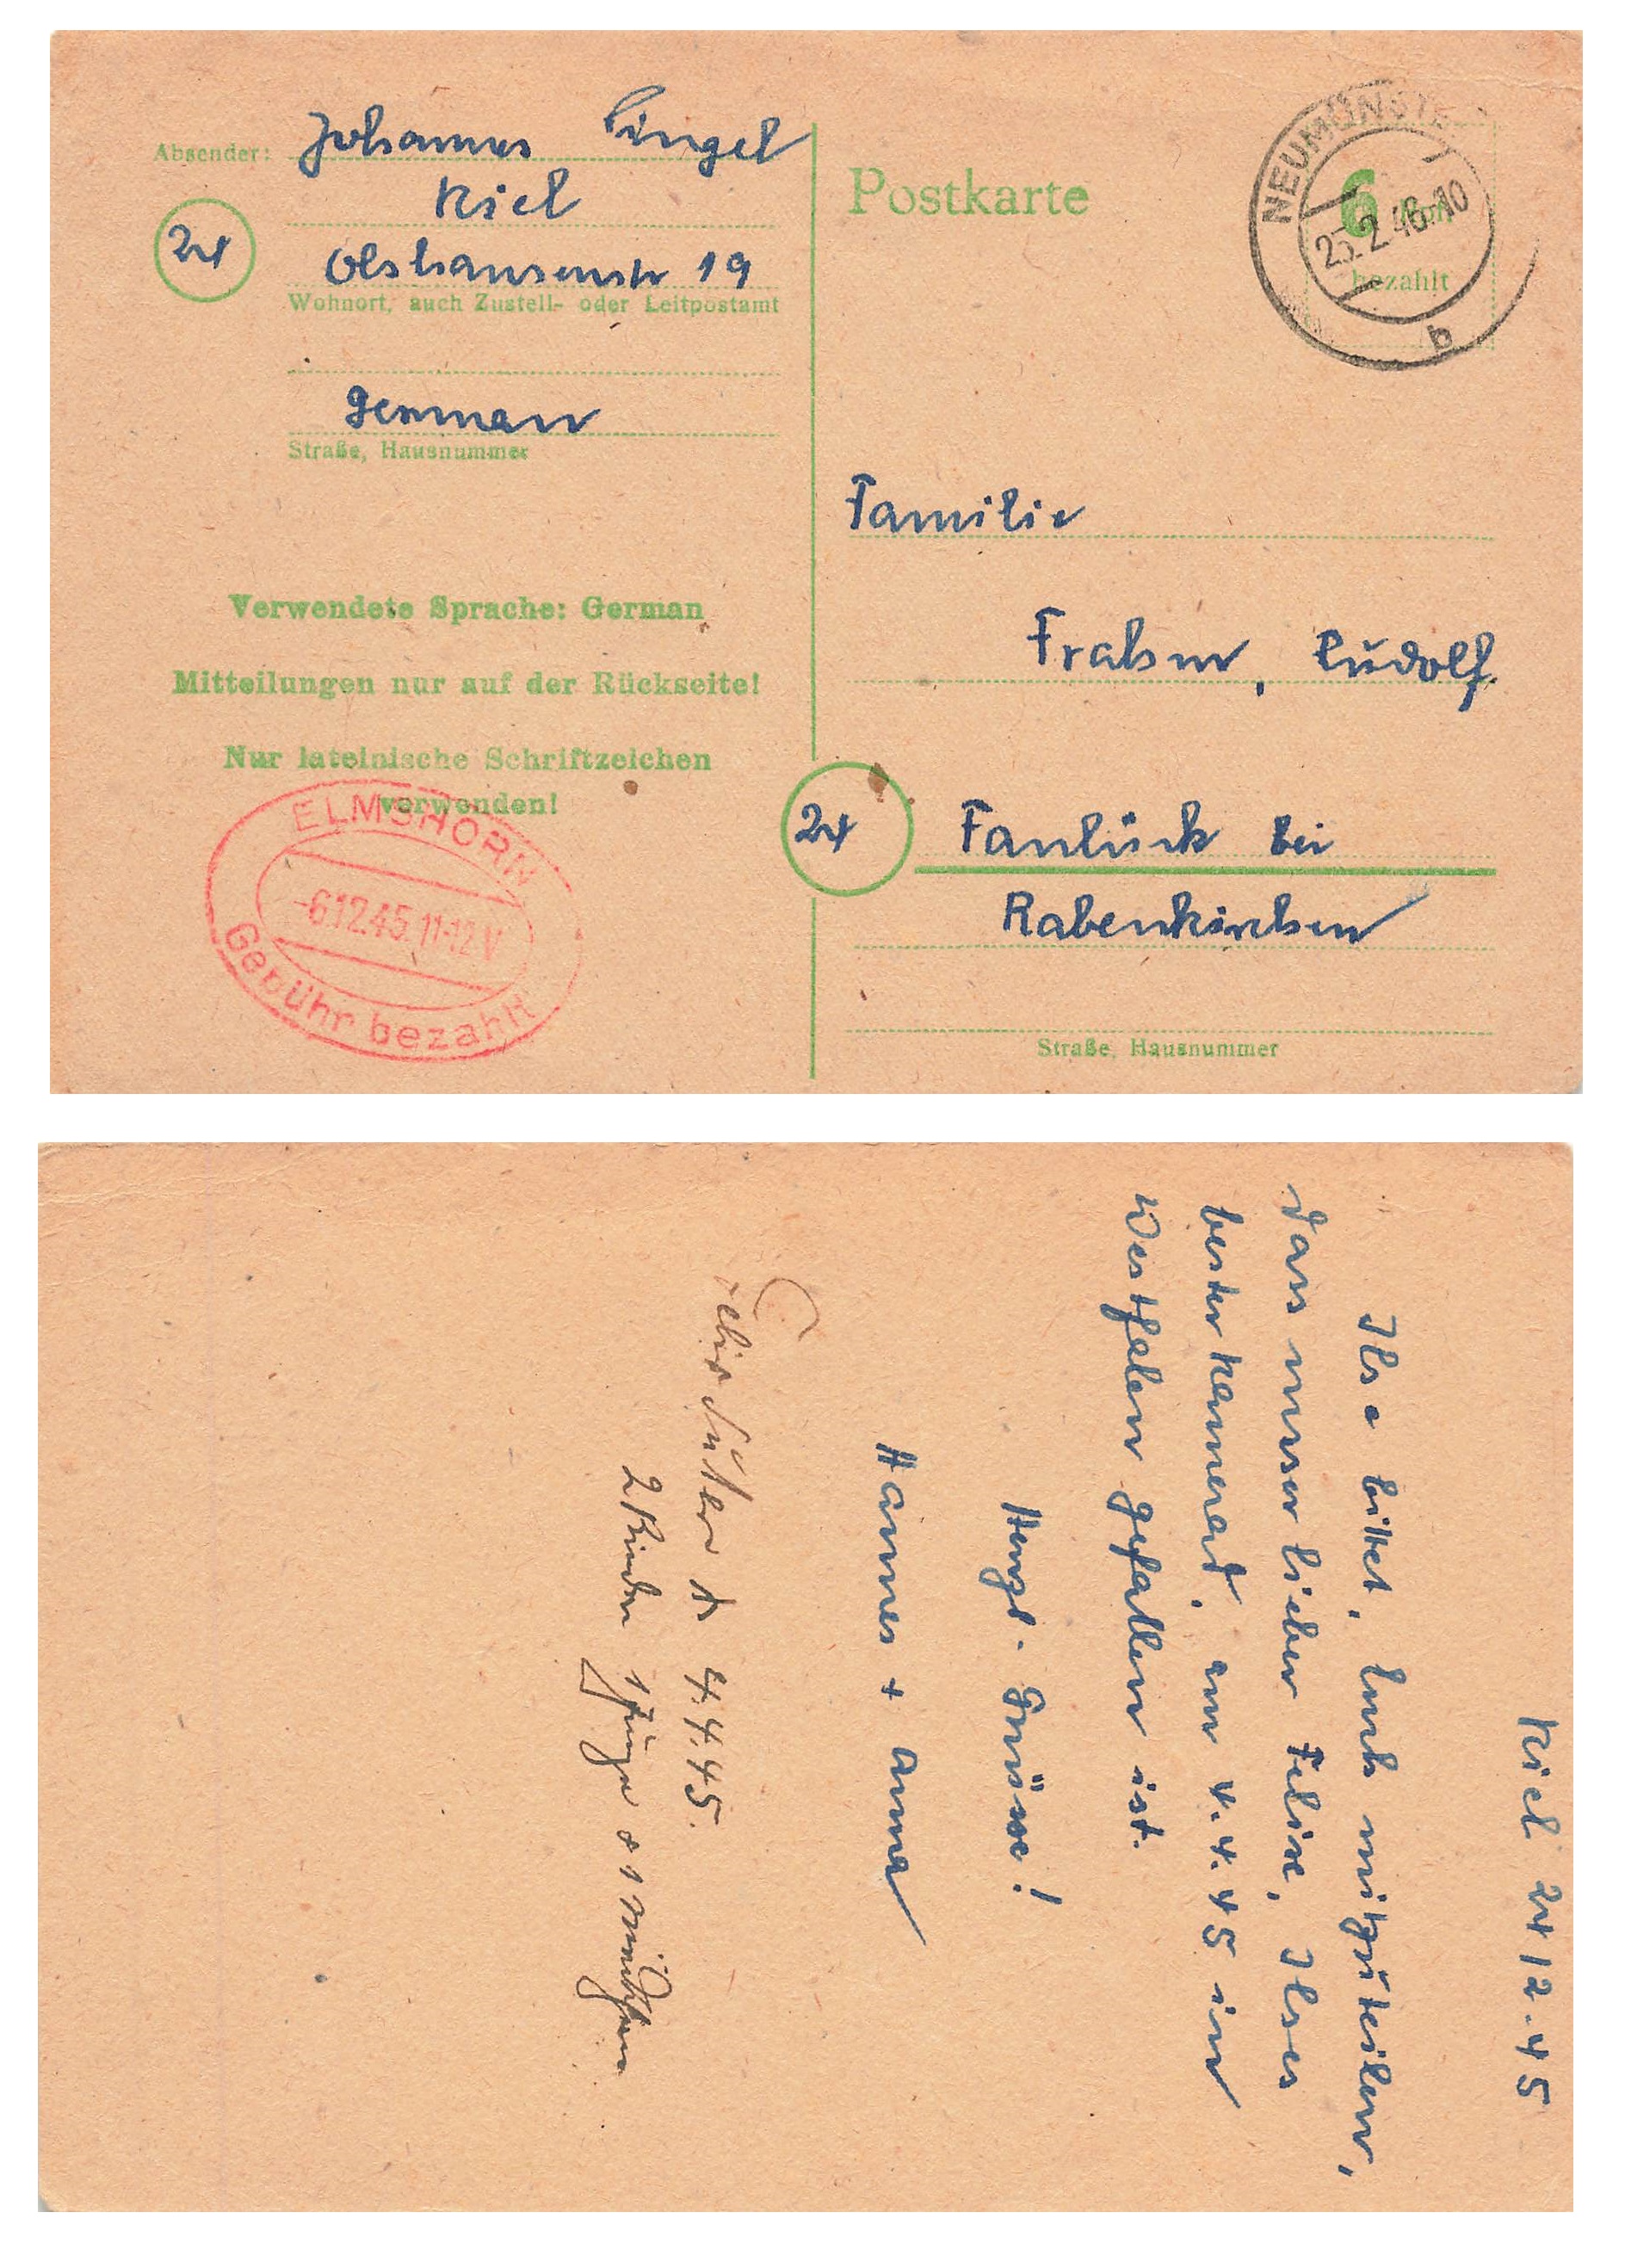 Absender: Johannes Singel
Kiel
24
Olshausenstr 19
Wohnort, auch Zustell- oder Leitpostamt
German
Straße, Hausnummer
Verwendete Sprache: German
Mitteilungen nur auf der Rückseite!
Nur lateinische Schriftzeichen
verwenden!
ELMSHORN
-6.12.45.11-12V
Gebühr bezahlt
Postkarte
NEUMÜNSTE
6
bezahlt
b
Familie
Frahm, Rudolf.
24
Faulück bei
Rabenkirchen
Straße, Hausnummer
Kiel 24 12. 45
Ilse bittet, Euch mitzuteilen,
dass unser lieber Felix, Ilses
bester Kamerad, am 4.4.45 in
Westfalen gefallen ist.
Herzl. Grüsse!
Hannes + Anna
4.4.45.
2 Kinder 1 Junge & 1 Mädchen